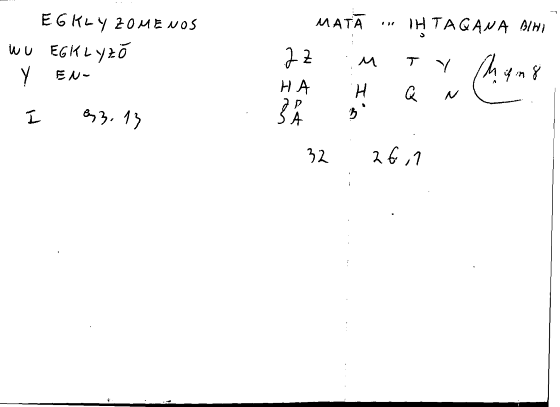 EGKLYZOMENOS
WU EGKLYZŌ
Y EN-
I 93.13
MATĀ ... IḤTAQANA BIHI
JZ M T Y
HA Ḥ Q N
JP
SA 3
32 26,1